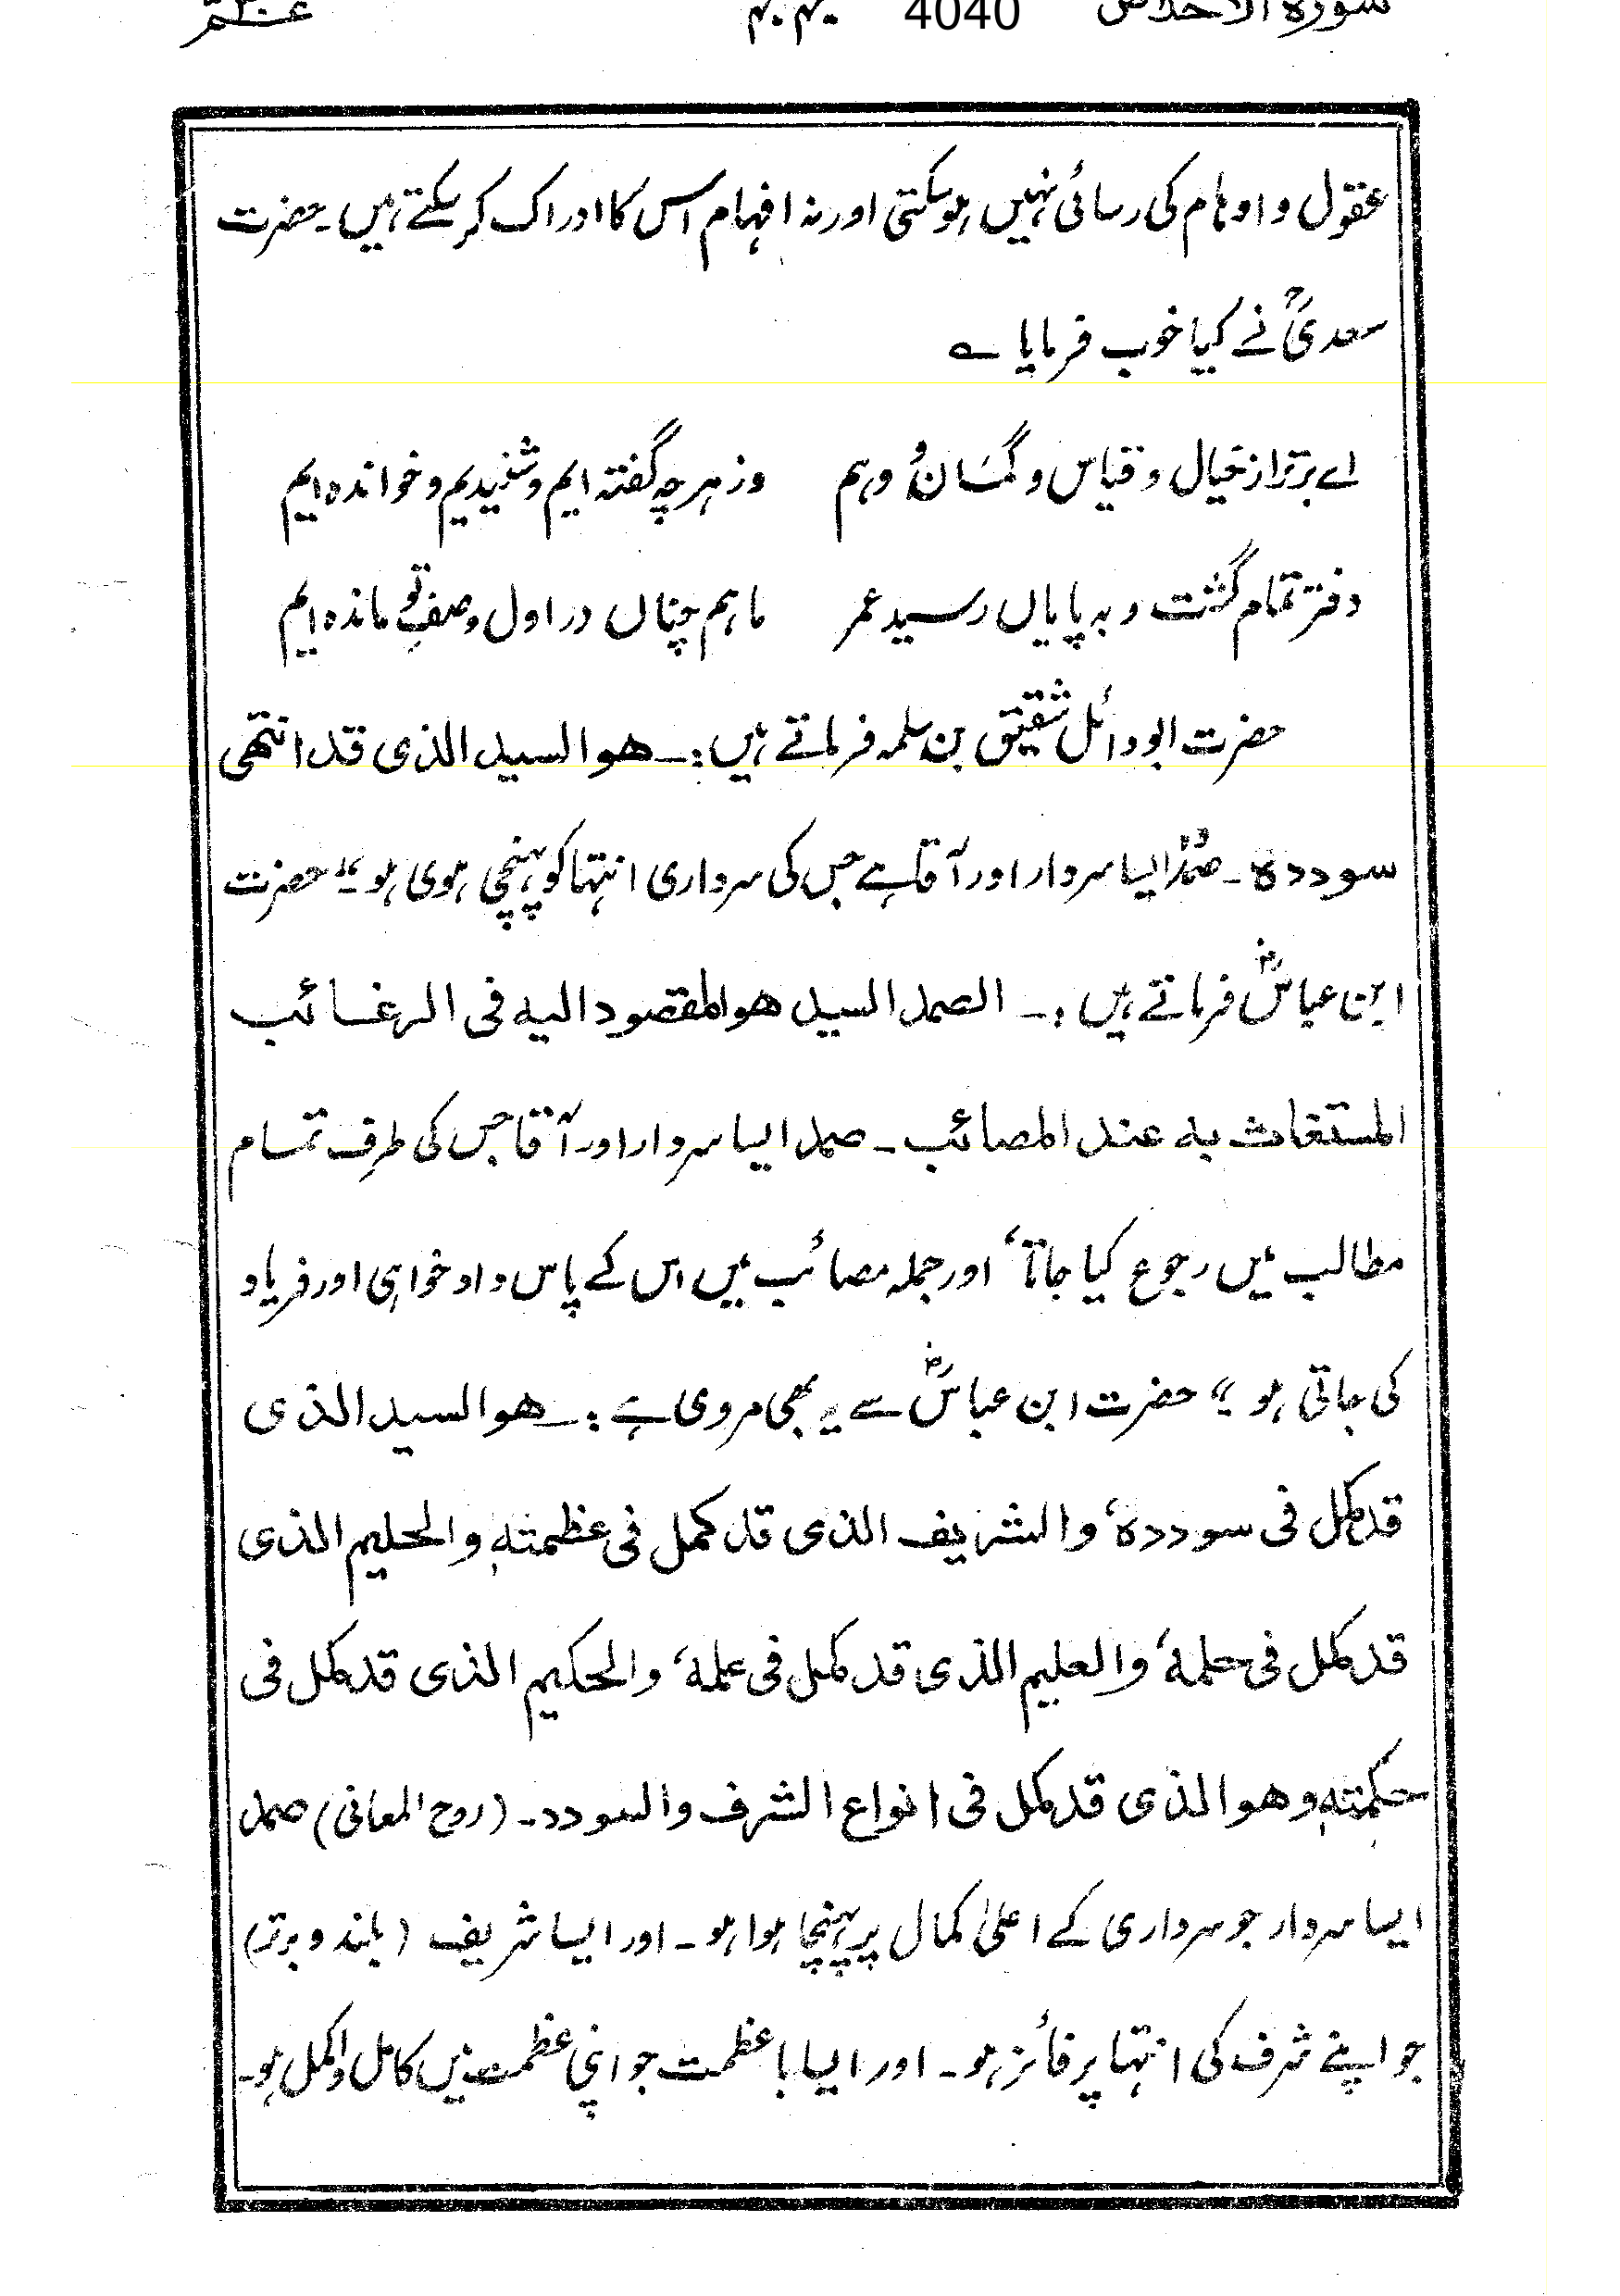 سورۃ الاخلاص 4040 عـــم
عقول و اوہام کی رسائی نہیں ہوسکتی اور نہ افہام اس کا ادراک کر سکتے ہیں۔ حضرت
سعدیؒ نے کیا خوب فرمایا ؎
اے برتر از خیال و قیاس و گمان و وہم وز ہرچہ گفتہ ایم و شنیدیم و خواندہ ایم
دفتر تمام گشت و بہ پایاں رسید عمر ما ہم چناں در اول وصفِ تو ماندہ ایم
حضرت ابو وائل شقیق بن سلمہ فرماتے ہیں :۔ ھو السید الذی قد انتھی
سوددہ ۔ صمد ایسا سردار اور آقا ہے جس کی سرداری انتہا کو پہنچی ہوی ہو ۔" حضرت
ابن عباسؓ فرماتے ہیں :۔ الصمد السید ھو المقصود الیہ فی الرغائب
المستغاث بہ عند المصائب ۔ صمد ایسا سردار اور آقا جس کی طرف تمام
مطالب میں رجوع کیا جاتا، اور جملہ مصائب میں اس کے پاس داد خواہی اور فریاد
کی جاتی ہو ۔" حضرت ابن عباسؓ سے یہ بھی مروی ہے :۔ ھو السید الذی
قد کمل فی سوددہ، والشریف الذی قد کمل فی عظمتہٖ والحلیم الذی
قد کمل فی حلمہ، والعلیم الذی قد کمل فی علمہ، والحکیم الذی قد کمل فی
حکمتہٖ وھو الذی قد کمل فی انواع الشرف والسودد۔ (روح المعانی) صمد
ایسا سردار جو سرداری کے اعلیٰ کمال پر پہنچا ہوا ہو ۔ اور ایسا شریف (بلند و برتر)
جو اپنے شرف کی انتہا پر فائز ہو ۔ اور ایسا با عظمت جو اپنی عظمت میں کامل و اکمل ہو۔